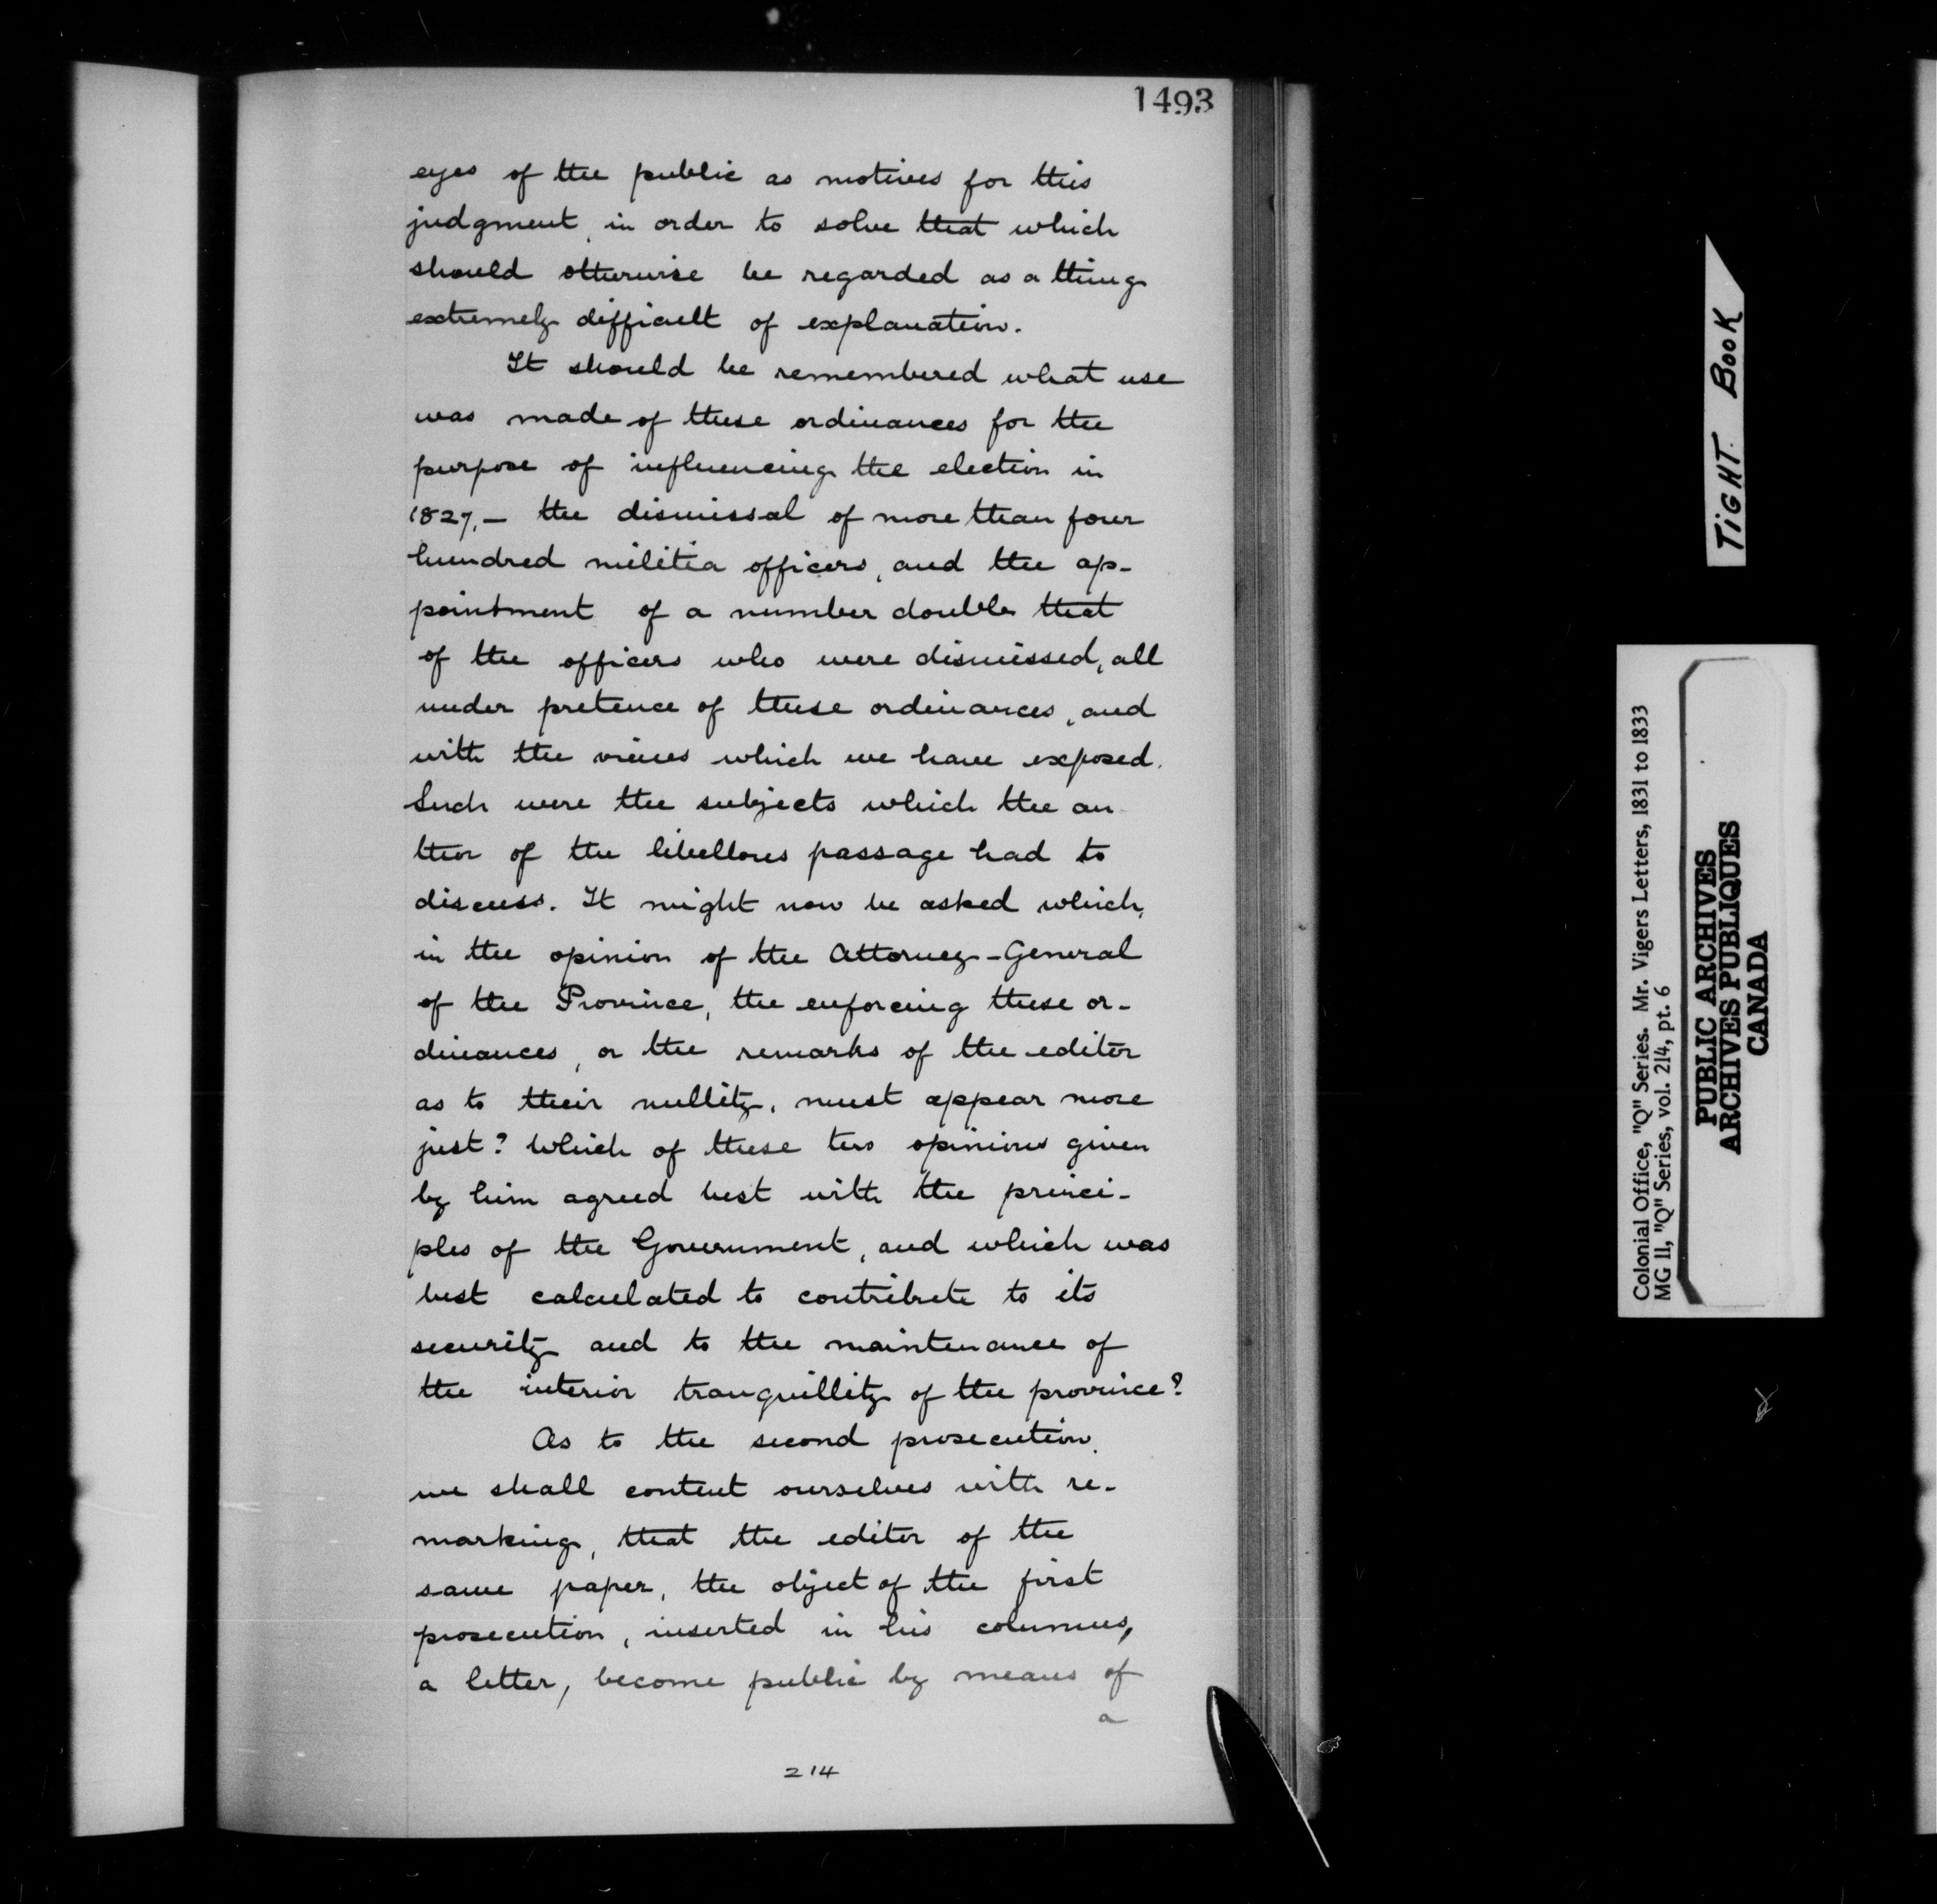 1493
eyes of the public as motives for this
judgment, in order to solve that which
should otherwise be regarded as a thing
extremely difficult of explanation.
It should be remembered what use
was made of these ordinances for the
purpose of influencing the election in
1827,— the dismissal of more than four
hundred militia officers, and the ap-
pointment of a number double that
of the officers who were dismissed, all
under pretence of these ordinances, and
with the views which we have exposed.
Such were the subjects which the au
thor of the libellous passage had to
discuss. It might now be asked which,
in the opinion of the Attorney-General
of the Province, the enforcing these or-
dinances, or the remarks of the editor
as to their nullity, must appear more
just? Which of these two opinions given
by him agreed best with the princi-
ples of the Government, and which was
best calculated to contribute to its
security and to the maintenance of
the interior tranquillity of the province?
As to the second prosecution,
we shall content ourselves with re-
marking, that the editor of the
same paper, the object of the first
prosecution, inserted in his columns,
a letter, become public by means of
a
214
TIGHT BOOK
Colonial Office, "Q" Series. Mr. Vigers Letters, 1831 to 1833
MG 11, "Q" Series, vol. 214, pt. 6
PUBLIC ARCHIVES
ARCHIVES PUBLIQUES
CANADA